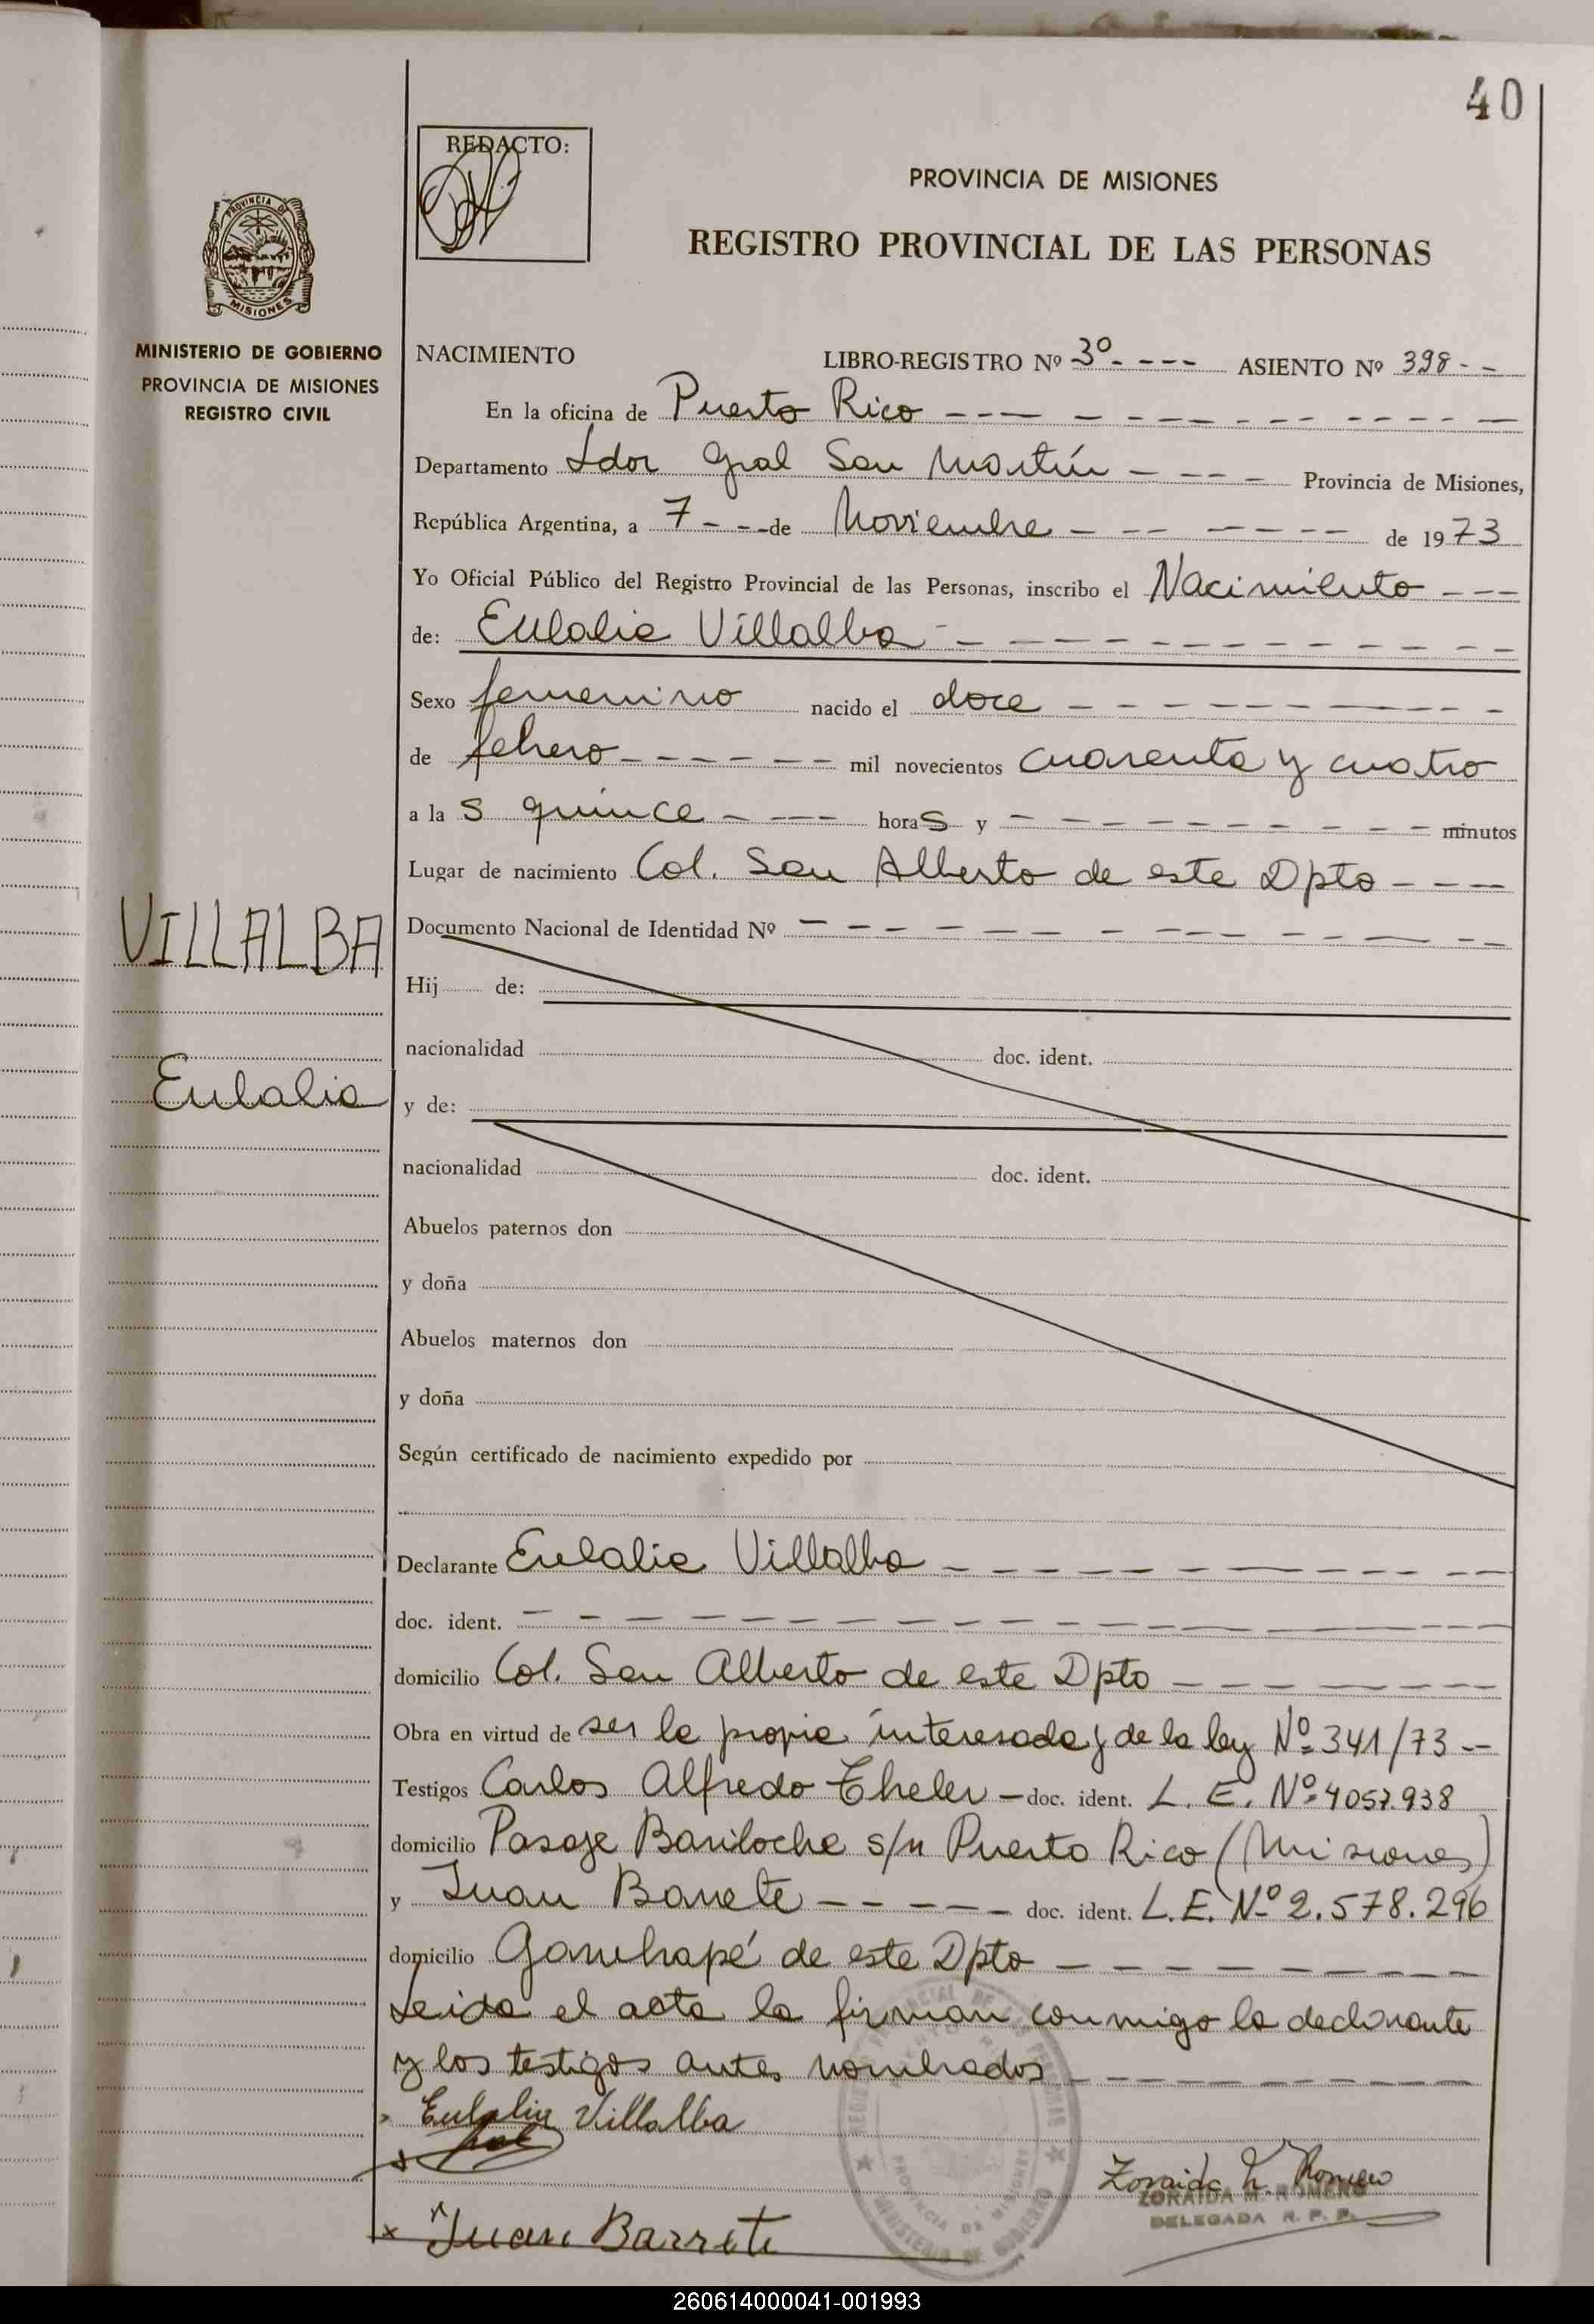 40
REDACTO:
PROVINCIA DE MISIONES
REGISTRO PROVINCIAL DE LAS PERSONAS
PROVINCIA DE
MISIONES
MINISTERIO DE GOBIERNO
PROVINCIA DE MISIONES
REGISTRO CIVIL
NACIMIENTO LIBRO-REGISTRO Nº 3º - - - - ASIENTO Nº 398 - -
En la oficina de Puerto Rico
Departamento Ldor Gral San Martín Provincia de Misiones,
República Argentina, a 7 - - - de Noviembre de 1973
Yo Oficial Público del Registro Provincial de las Personas, inscribo el Nacimiento
de: Eulalia Villalba
Sexo femenino nacido el doce
de febrero mil novecientos cuarenta y cuatro
a la s quince horas y minutos
Lugar de nacimiento Col. San Alberto de este Dpto
VILLALBA
Documento Nacional de Identidad Nº
Hij de:
nacionalidad doc. ident.
Eulalia
y de:
nacionalidad doc. ident.
Abuelos paternos don
y doña
Abuelos maternos don
y doña
Según certificado de nacimiento expedido por
Declarante Eulalia Villalba
doc. ident.
domicilio Col. San Alberto de este Dpto
Obra en virtud de ser la propia interesada y de la ley Nº 341/73
Testigos Carlos Alfredo Theler - doc. ident. L. E. Nº 4057.938
domicilio Pasaje Bariloche s/n Puerto Rico (Misiones)
y Juan Barrete doc. ident. L.E. Nº 2.578.296
domicilio Garuhapé de este Dpto
Leida el acta la firman conmigo la declarante
y los testigos antes nombrados
Eulalia Villalba
Zoraida M. Romero
ZORAIDA M. ROMERO
DELEGADA R. P. P.
x Juan Barrete
260614000041-001993